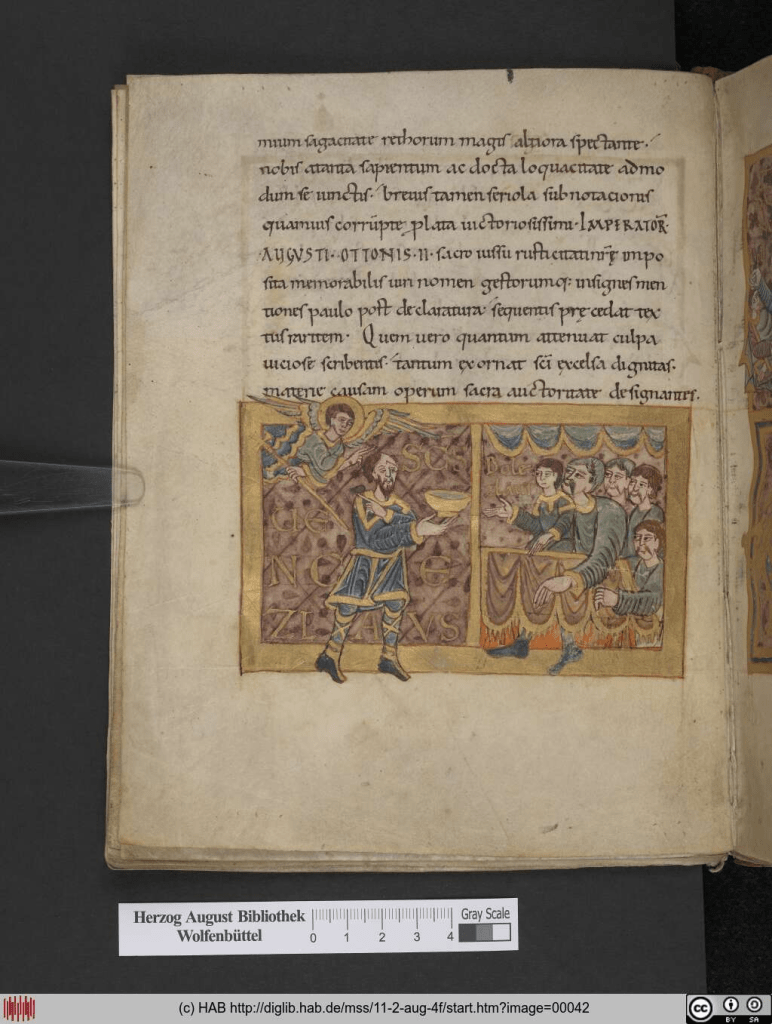 mium sagacitate rethorum magis altiora spectante.
nobis a tanta sapientum ac docta loquacitate admo
dum seiunctis. brevis tamen seriola subnotacionis
quamvis corrupte plata victoriosissimi. IMPERATOR.
AUGUSTI. OTTONIS. II. sacro iussu
sita memorabilis viri nomen gestorumq; insignes men
tiones paulo post declaratura. sequentis precedat tex
tus raritem. Quem vero quantum attenuat culpa
viciose scribentis. tantum exornat sci excelsa dignitas.
materie causam operum sacra auctoritate designantes.
SCS
VVEN
NC E
ZLAVS
Herzog August Bibliothek
Wolfenbüttel
0 1 2 3 4
Gray Scale
(c) HAB http://diglib.hab.de/mss/11-2-aug-4f/start.htm?image=00042
cc BY SA